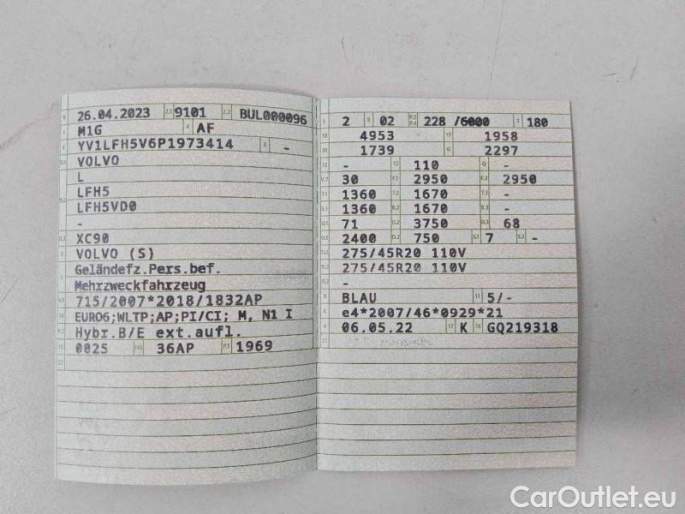 26.04.2023 9101 BUL000096
M1G AF
YV1LFH5V6P1973414 -
VOLVO
L
LFH5
LFH5VD0
-
XC90
VOLVO (S)
Geländefz.Pers.bef.
Mehrzweckfahrzeug
715/2007*2018/1832AP
EURO6;WLTP;AP;PI/CI; M, N1 I
Hybr.B/E ext.aufl.
0025 36AP 1969
2 02 228 /6000 180
4953 1958
1739 2297
- 110 -
30 2950 2950
1360 1670 -
1360 1670 -
71 3750 68
2400 750 7 -
275/45R20 110V
275/45R20 110V
-
BLAU 5/-
e4*2007/46*0929*21
06.05.22 K GQ219318
CarOutlet.eu